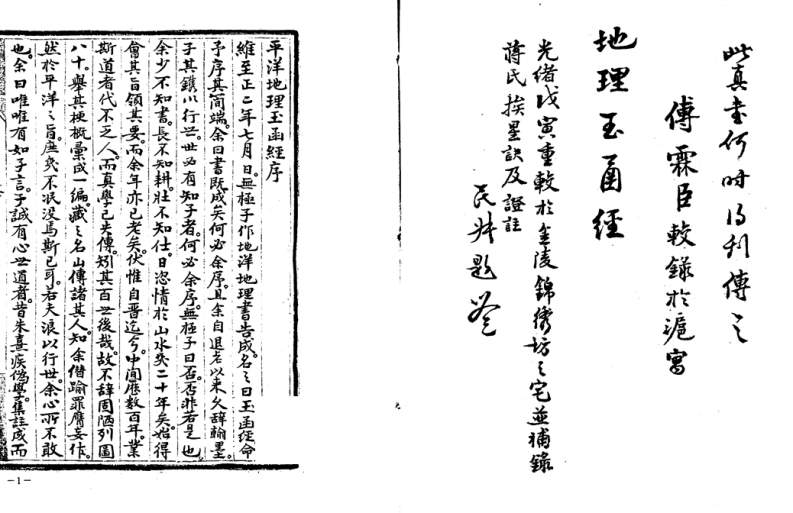 此真書何時得刊傳之
傅霖臣較錄於滬寓
地理玉函經
光緒戊寅重較於金陵錦衛坊之宅並補錄
蔣氏挨星訣及證註
平洋地理玉函經序
維至正二年七月日。無極子作地洋地理書告成。名之曰玉函經命
予序其簡端。余曰書既成矣何必余序。且余自退老以來久辭翰墨。
子其鐵以行世。世必有知子者。何必余序。無極子曰否。否非若是也。
余少不知書。長不知耕。壯不知仕。日恣情於山水矣二十年矣。始得
會其旨領其要。而余年亦已老矣。伏惟自晋迄今。中間歷數百年。業
斯道者代不乏人。而真學已失傳。矧其百世後哉。故不辭固陋列圖
八十。舉其梗概彙成一編。藏之名山傳諸其人。知余僭踰罪膺妄作。
然於平洋之旨。庶幾不泯沒焉斯已耳。若夫浪以行世。余心所不敢
也。余曰唯唯有如子言。子誠有心世道者。昔朱熹疾偽學。集註成而
-1-